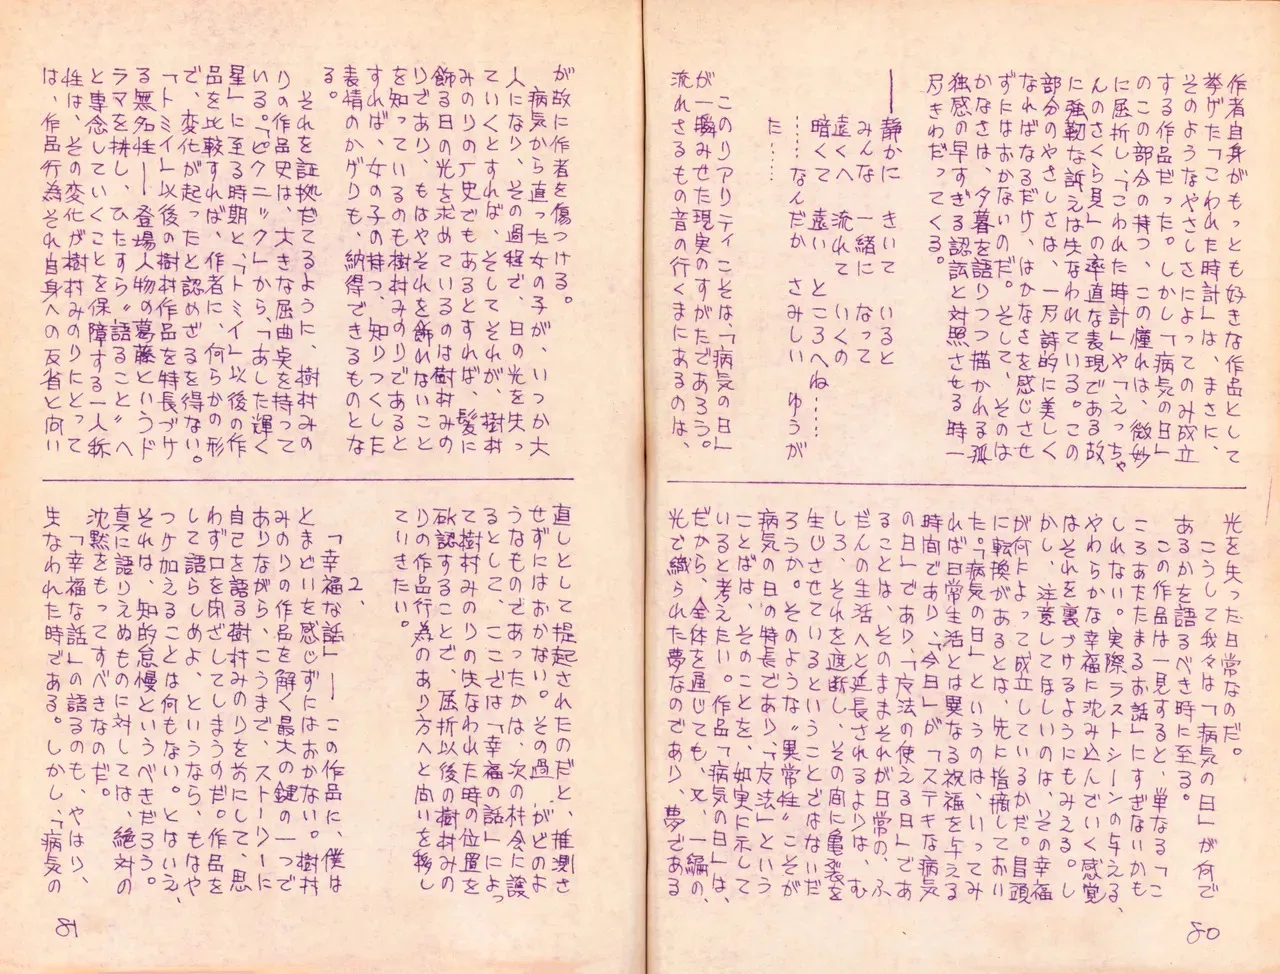 作者自身がもっとも好きな作品として
挙げた「こわれた時計」は、まさに、
そのようなやさしさによってのみ成立
する作品だった。しかし「病気の日」
のこの部分の持つ、この憧れは、微妙
に屈折し、「こわれた時計」や「えっちゃ
んのさくら見」の率直な表現である故
に強靭な訴えは失なわれている。この
部分のやさしさは、一刃詩的に美しく
なればなるだけ、はかなさを感じさせ
ずにはおかないのだ。そして、そのは
かなさは、夕暮を語りつつ描かれる孤
独感の早すぎる認識と対照させる時一
尽きわだってくる。
静かに きいて いると
みんな 一緒に なって
遠くへ 流れて いくの
暗くて 遠い ところへね……
……なんだか さみしい ゆうが
た……
このリアリティこそは、「病気の日」
が一瞬みせた現実のすがたであろう。
流れさるもの音の行くまにあるのは、
光を失った日常なのだ。
こうして我々は「病気の日」が何で
あるかを語るべき時に至る。
この作品は一見すると、単なる「こ
ころあたたまるお話」にすぎないかも
しれない。実際ラストシーンの与える、
やわらかな幸福に沈み込んでいく感覚
はそれを裏づけるようにもみえる。し
かし、注意してほしいのは、その幸福
が何によって成立しているかだ。冒頭
に転換があるとは、先に指摘しておい
た。「病気の日」というのは、いってみ
れば日常生活とは異なる祝福を与える
時間であり、「今日」が「ステキな病気
の日」であり、「友法の使える日」であ
ることは、そのままそれが日常の、ふ
だんの生活へと延長されるよりは、む
しろ、それを遮断し、その間に亀裂を
生じさせているということではないだ
ろうか。そのような〝異常性〟こそが
病気の日の特長であり、「友法」という
ことばは、そのことを、如実に示して
いると考えたい。作品「病気の日」は、
だから、全体を通じても、又、一編の、
光で織られた夢なのであり、夢である
80
が故に作者を傷つける。
病気から直った女の子が、いつか大
人になり、その過程で、日の光を失っ
ていくとすれば、そしてそれが、樹村
みのりの歴史でもあるとすれば、髪に
飾る日の光を求めているのは樹村みの
りであり、もはやそれを飾れないこと
を知っているのも樹村みのりであると
すれば、女の子の持つ、知りつくした
表情のかげりも、納得できるものとな
る。
それを証拠だてるように、樹村みの
りの作品史は、大きな屈曲点を持って
いる。「ピクニック」から、「あした輝く
星」に至る時期と、「トミイ」以後の作
品を比較すれば、作者に、何らかの形
で、変化が起ったと認めざるを得ない。
「トミイ」以後の樹村作品を特長づけ
る無名性――登場人物の葛藤というド
ラマを排し、ひたすら〝語ること〟へ
と専念していくことを保障する一人称
性は、その変化が樹村みのりにとって
は、作品行為それ自身への反省と向い
直しとして提起されたのだと、推測さ
せずにはおかない。その過 がどのよ
うなものであったかは、次の机会に譲
るとして、ここでは「幸福の話」によっ
て樹村みのりの失なわれた時の位置を
確認することで、屈折以後の樹村みの
りの作品行為のあり方へと向いを移し
ていきたい。
2、
「幸福な話」――この作品に、僕は
とまどいを感じずにはおかない。樹村
みのりの作品を解く最大の鍵の一つで
ありながら、こうまで、ストーリーに
自己を語る樹村みのりを前にして、思
わず口を閉ざしてしまうのだ。作品を
して語らしめよ、というなら、もはや
つけ加えることは何もない。とはいえ、
それは、知的怠慢というべきだろう。
真に語りえぬものに対しては、絶対の
沈黙をもってすべきなのだ。
「幸福な話」の語るのも、やはり、
失なわれた時である。しかし、「病気の
81